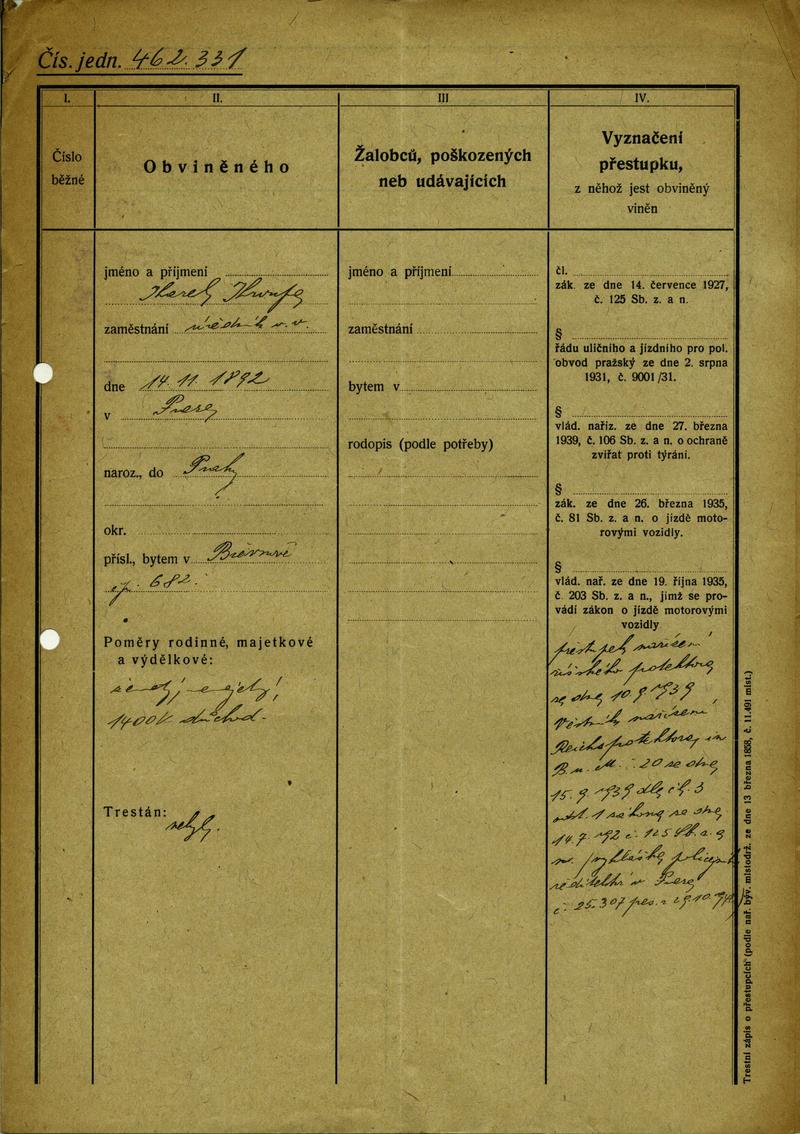 Čís. jedn. 462.331
I.
Číslo
běžné
II.
Obviněného
jméno a příjmení
zaměstnání úředník v. v.
dne 14. 11. 1892
v Praze
naroz., do Prahy
okr.
přísl., bytem v Břevnově
čp. 682.
Poměry rodinné, majetkové
a výdělkové:
1400 K důchod.
Trestán:
III
Žalobců, poškozených
neb udávajících
jméno a příjmení
zaměstnání
bytem v
rodopis (podle potřeby)
IV.
Vyznačení
přestupku,
z něhož jest obviněný
viněn
čl.
zák. ze dne 14. července 1927,
č. 125 Sb. z. a n.
§
řádu uličního a jízdního pro pol.
obvod pražský ze dne 2. srpna
1931, č. 9001/31.
§
vlád. naříz. ze dne 27. března
1939, č. 106 Sb. z. a n. o ochraně
zvířat proti týrání.
§
zák. ze dne 26. března 1935,
č. 81 Sb. z. a n. o jízdě moto-
rovými vozidly.
§
vlád. nař. ze dne 19. října 1935,
č. 203 Sb. z. a n., jímž se pro-
vádí zákon o jízdě motorovými
vozidly
přestupek nařízení
říšského protektora
ze dne 10. 9. 1939,
Věstník nařízení
Reichsprotektora in
B. u. M. č. 20 ze dne
15. 9. 1939 dle čl. 3
odst. 1 zákona ze dne
14. 7. č. 125 Sb. z. a
vyhlášky policej.
ředitelství v Praze
č. 25.307 pres.
Trestní zápis o přestupcích (podle nař. býv. místodrž. ze dne 13 března 1858, č. 11.491 míst.)